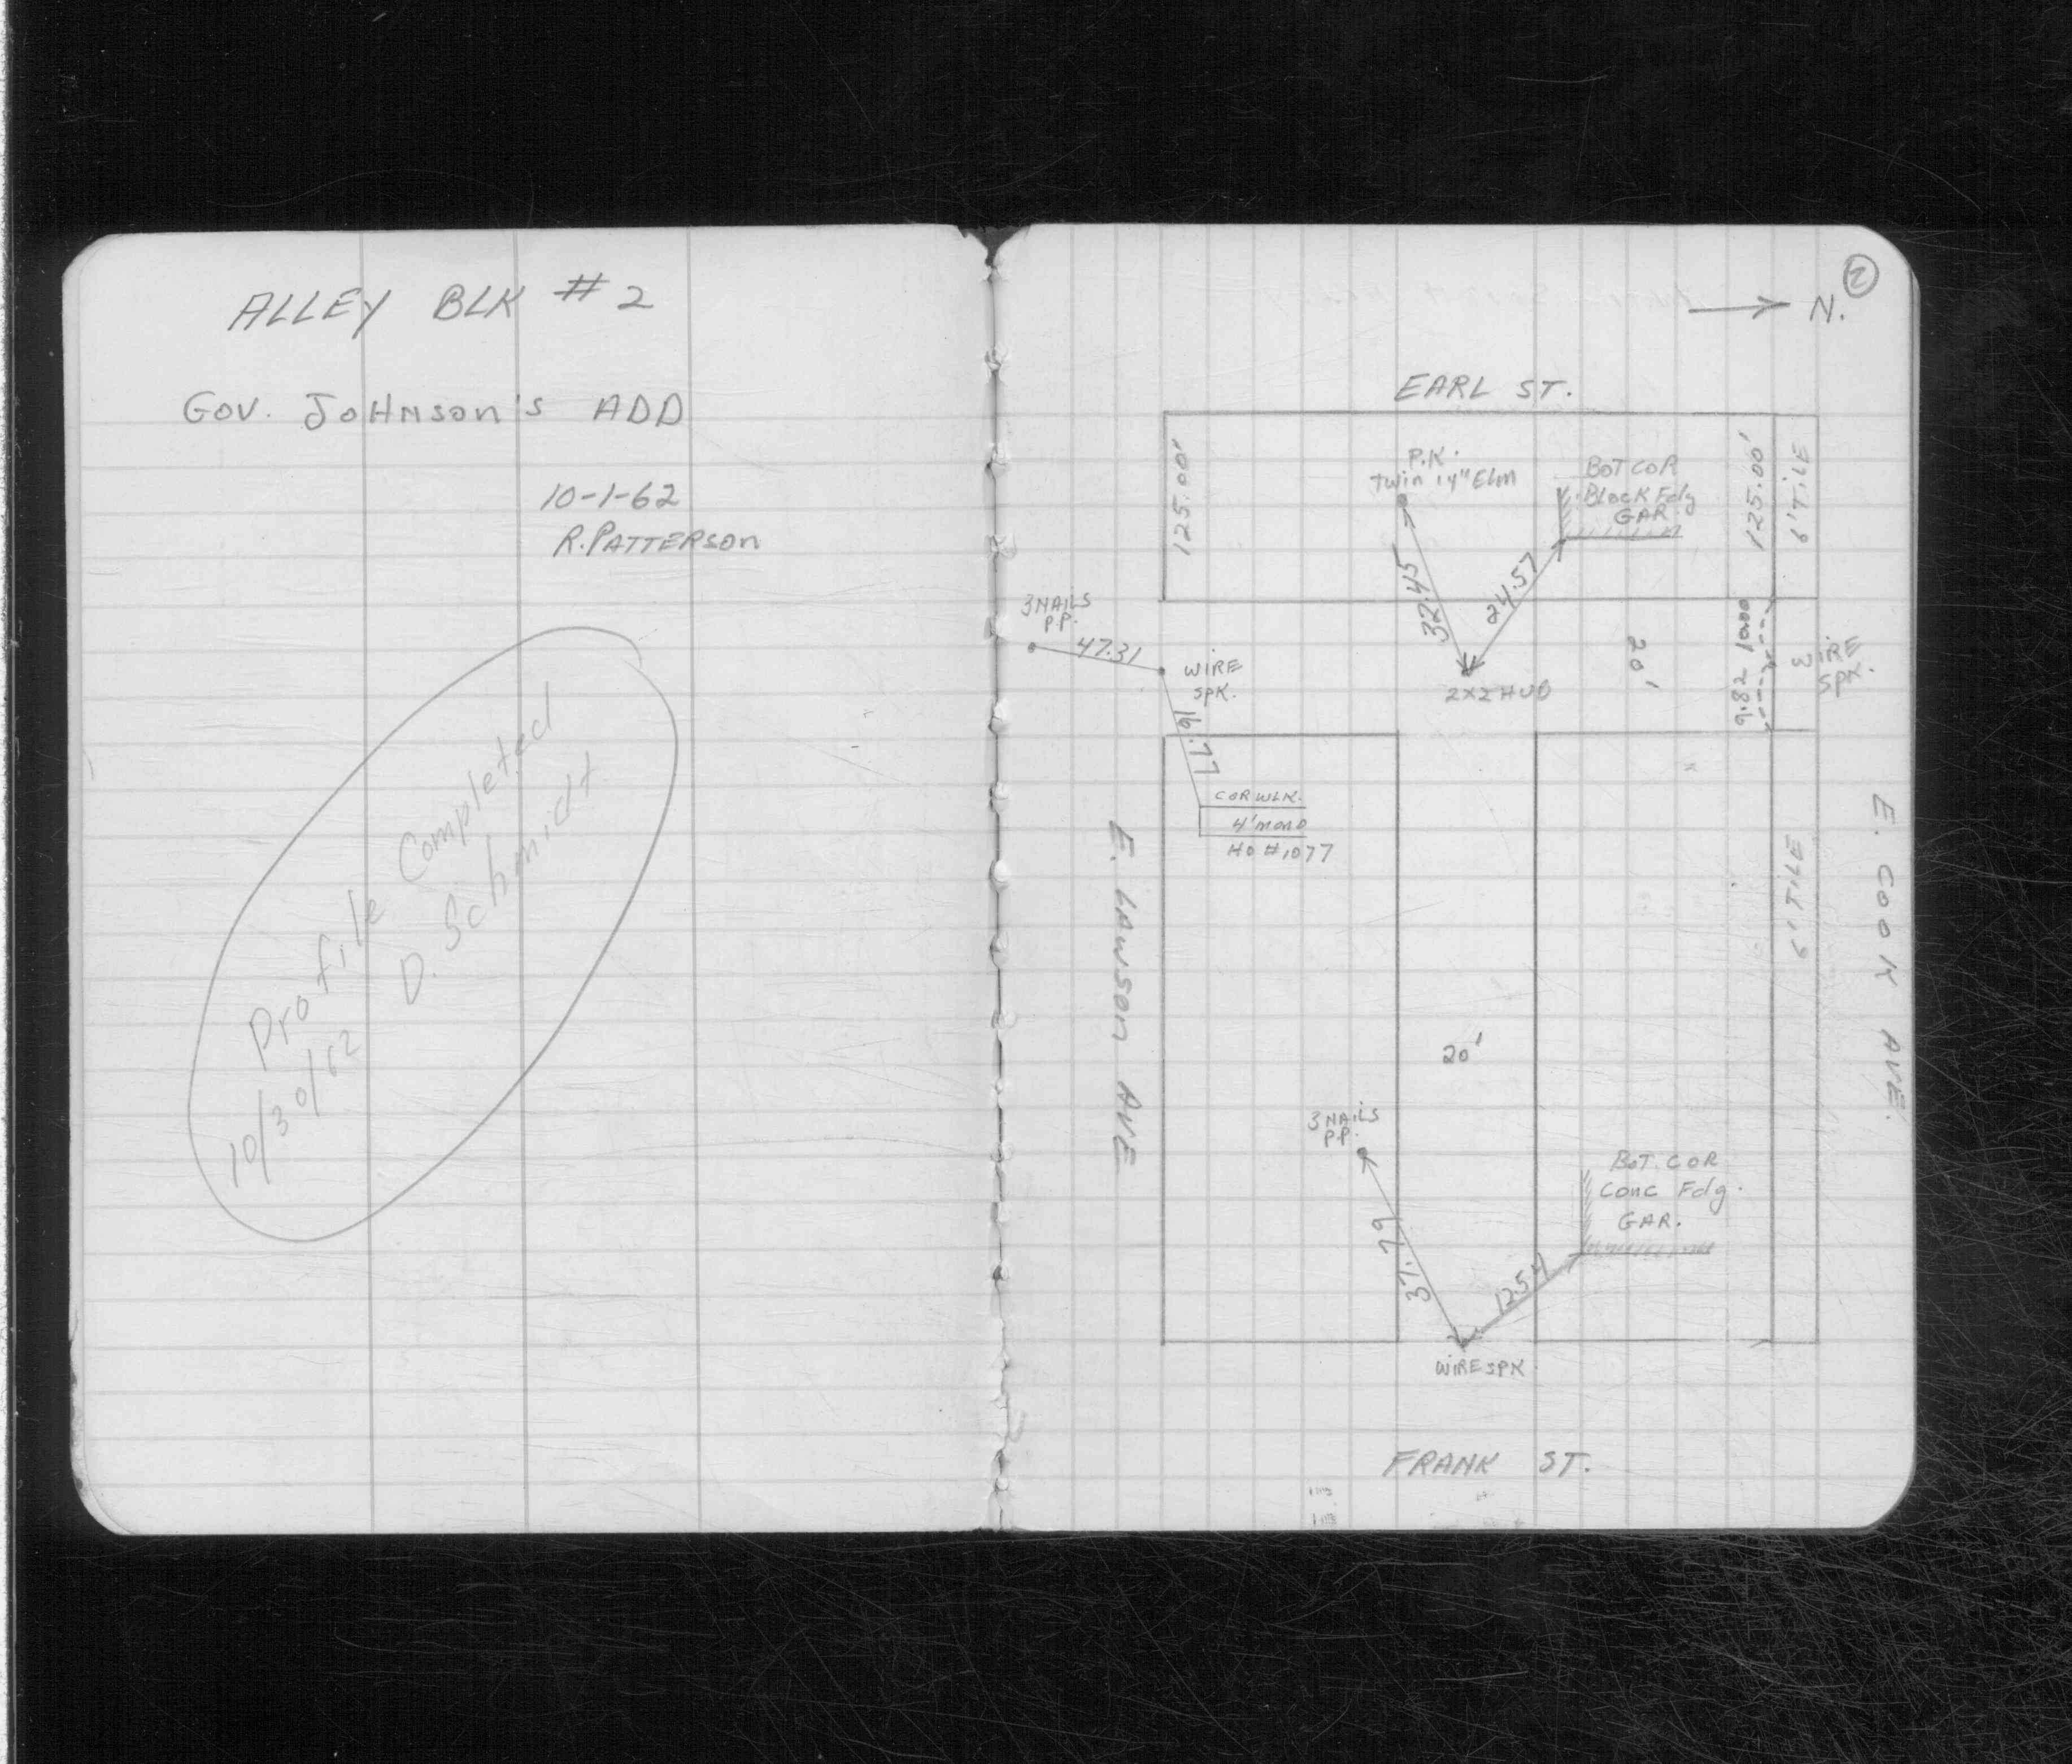 ALLEY BLK #2
GOV. JOHNSON'S ADD
10-1-62
R. PATTERSON
Profile Completed
10/30/62 D. Schmidt
2
N.
EARL ST.
125.00'
P.K.
Twin 14" Elm
BOT COR
Block Fdg
GAR.
125.00'
6' TILE
32.45
24.57
3 NAILS
P.P.
47.31
WIRE
SPK.
16.77
2X2 HUB
20'
9.82 10.00
WIRE
SPK.
COR WLK.
4' MONO
HO #1077
E. LAWSON AVE
6' TILE
E. COOK AVE.
20'
3 NAILS
P.P.
37.79
12.54
BOT. COR
Conc Fdg.
GAR.
WIRE SPK.
FRANK ST.